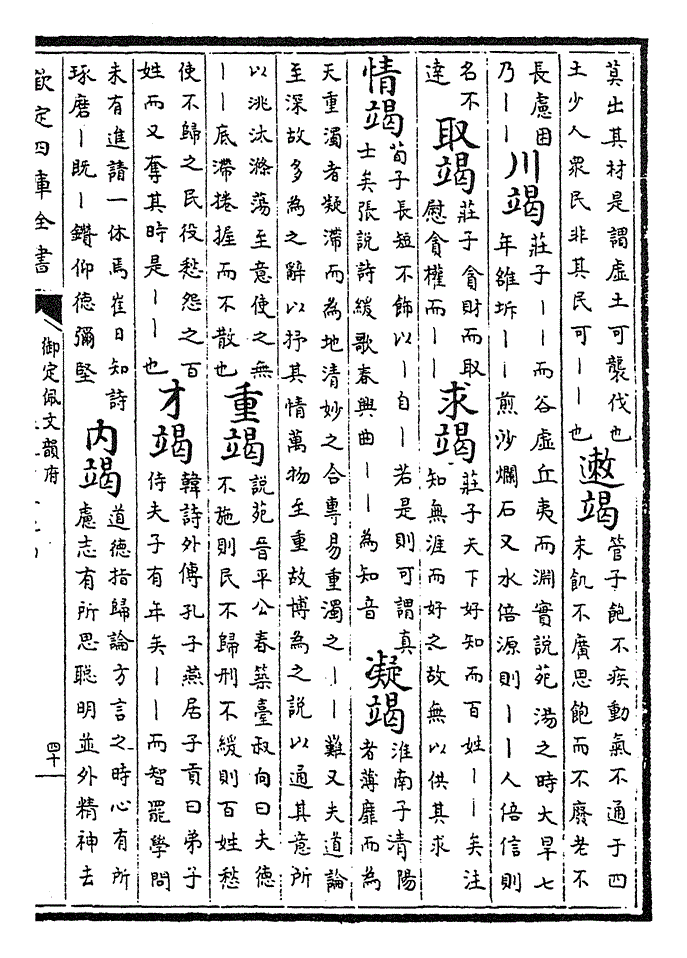 莫出其材是謂虛土可襲伐也
土少人衆民非其民可｜｜也
遬竭
管子飽不疾動氣不通于四
末飢不廣思飽而不廢老不
長慮困
乃｜｜
川竭
莊子｜｜而谷虛丘夷而淵實說苑湯之時大旱七
年雒坼｜｜煎沙爛石又水倍源則｜｜人倍信則
名不
達
取竭
莊子貪財而取
慰貪權而｜｜
求竭
莊子天下好知而百姓｜｜矣注
知無涯而好之故無以供其求
情竭
荀子長短不飾以｜自｜若是則可謂真
士矣張說詩緩歌春興曲｜｜為知音
凝竭
淮南子清陽
者薄靡而為
天重濁者凝滯而為地清妙之合專易重濁之｜｜難又夫道論
至深故多為之辭以抒其情萬物至重故博為之說以通其意所
以洮汰滌蕩至意使之無
｜｜底滯捲握而不散也
重竭
說苑晉平公春築臺叔向曰夫德
不施則民不歸刑不緩則百姓愁
使不歸之民役愁怨之百
姓而又奪其時是｜｜也
才竭
韓詩外傳孔子燕居子貢曰弟子
侍夫子有年矣｜｜而智罷學問
未有進請一休焉崔日知詩
琢磨｜既｜鑽仰德彌堅
內竭
道德指歸論方言之時心有所
慮志有所思聰明並外精神去
欽定四庫全書
御定佩文韻府
四十